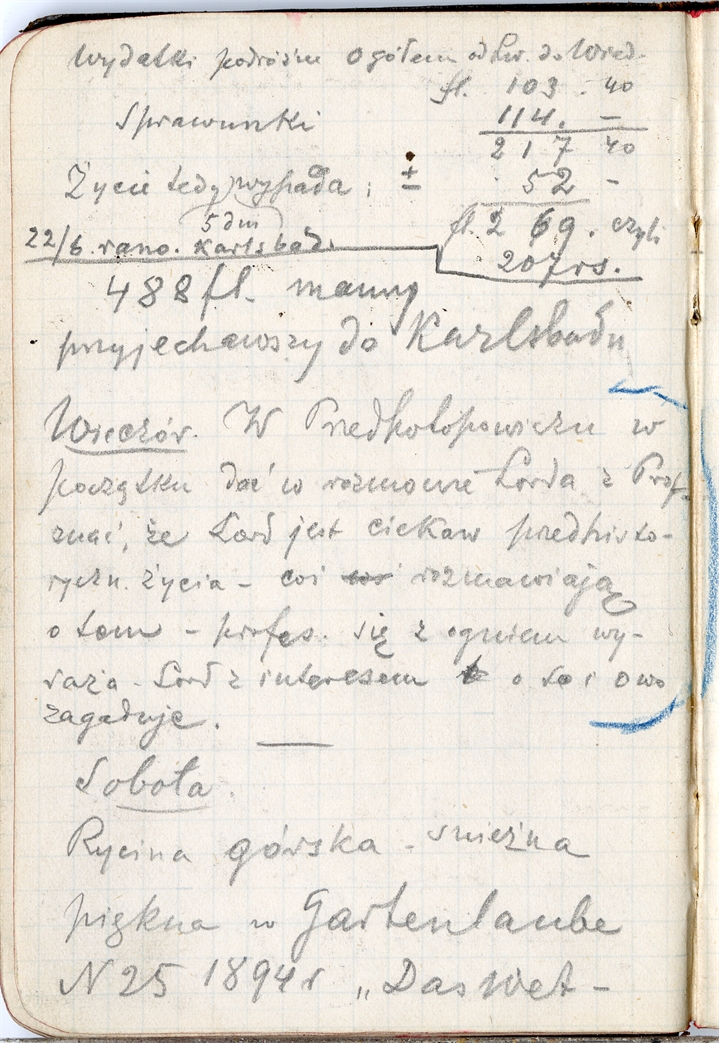 Wydatki podróżne ogółem od Lw. do Wied.
fl. 103 . 40
Sprawunki 114. –
217 40
Życie tedy wypada ; ± 52 –
5 dni fl. 269. czyli
22/6. rano. Karlsbad. 207 rs.
488 fl. mamy
przyjechawszy do Karlsbadu
Wieczór. W Przedhotopowiczu w
początku dać w rozmowie Lorda z Prof.
znać, że Lord jest ciekaw przedhisto-
ryczn. życia – coś rozmawiają
o tem – profes. się z ogniem wy-
raża – Lord z interesem o to i owo
zagaduje.
Sobota.
Rycina górska – śnieżna
piękna w Gartenlaube
N 25 1894 r „Das Wet-